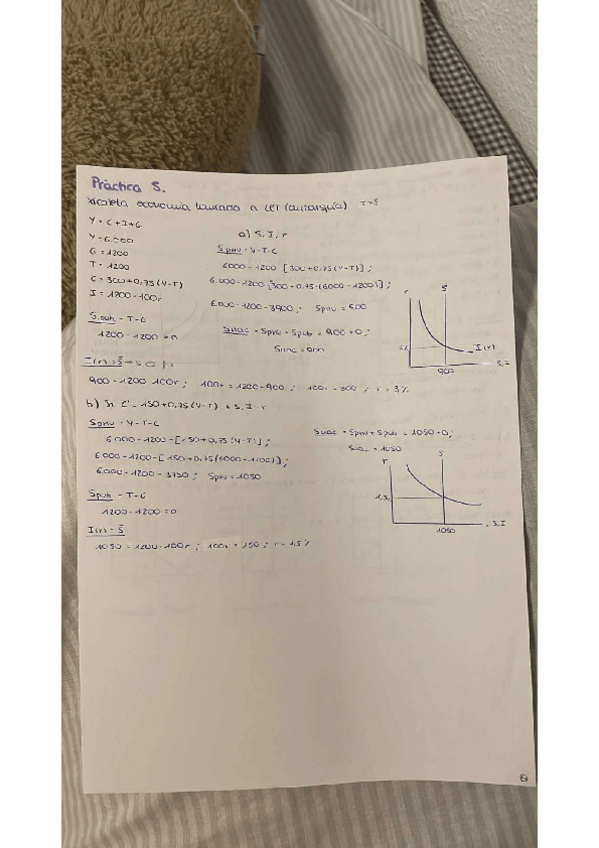 Práctica 5.
economía a LCT (autarquía) T=G
Y = C+I+G
Y=6.000
G = 1200
T = 1200
C = 300+0,75(Y-T)
I = 1200-100r
a) S, I, r
Spriv = Y-T-C
6000-1200 [300+0,75(Y-T)];
6.000-1200-[300+0,75·(6000-1200)];
6.000-1200-3900; Spriv = 900
Spub = T-G
1200-1200=0
Snac = Spriv + Spub = 900+0;
Snac = 900
r
S
I(r)
S,I
900
I(r) = S
900 = 1200-100r; 100r = 1200-900; 100r = 300; r = 3%
b) Si C = 150+0,75(Y-T) S, I r
Spriv = Y-T-C
6.000-1200-[150+0,75(Y-T)];
6.000-1200-[150+0,75(6000-1200)];
6.000-1200-3750; Spriv = 1050
Snac = Spriv + Spub = 1050+0;
Snac = 1050
r
S
1,5
S,I
1050
Spub = T-G
1200-1200=0
I(r) = S
1050 = 1200-100r; 100r = 150; r = 1,5%